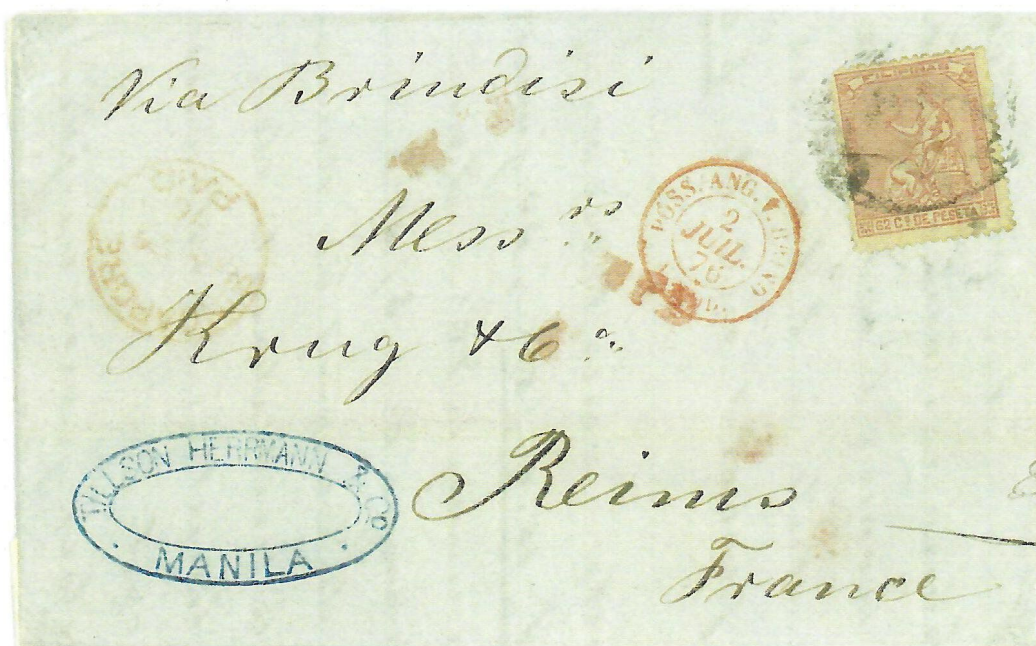 Via Brindisi
FILIPINAS
62 Cs DE PESETA
PAID
POSS. ANG. V. BRIND.
2
JUIL.
76
Mess rs
Krug & Co
TILLSON HERRMANN & Co
· MANILA ·
Reims
France